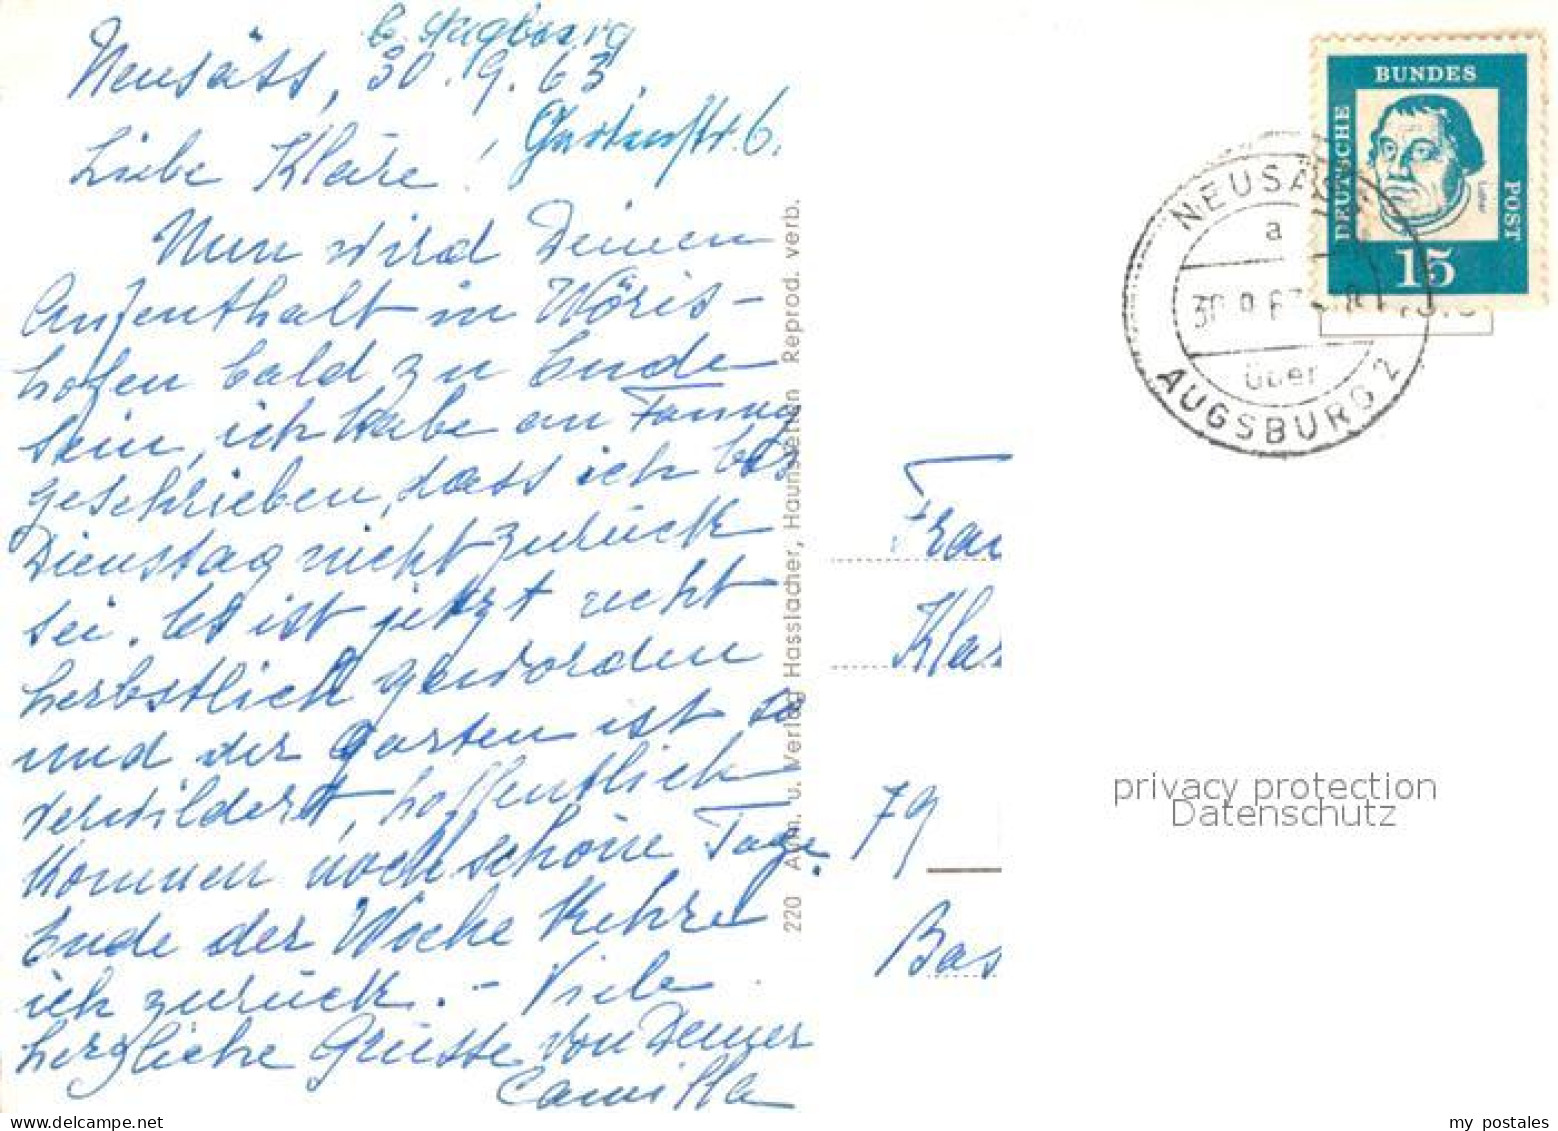 b. Augsburg
Neusäss, 30.9.63.
Gartenstr. 6.
Liebe Kläre!
Nun wird Deinen
Aufenthalt in Wöris-
hofen bald zu Ende
sein, ich habe an Fanny
geschrieben, dass ich bis
Dienstag nicht zurück
sei. Es ist jetzt recht
herbstlich geworden
und der Garten ist so
verwildert, hoffentlich
kommen noch schöne Tage.
Ende der Woche kehre
ich zurück. - Viele
herzliche Grüsse von Deiner
Camilla
220 Aufn. u. Verlag Hasslacher, Haunstetten Reprod. verb.
DEUTSCHE
BUNDES
POST
Luther
15
NEUSÄ
a
30.9.63
über
AUGSBURG 2
Frau
Klar
79
Bas
privacy protection
Datenschutz
my postales